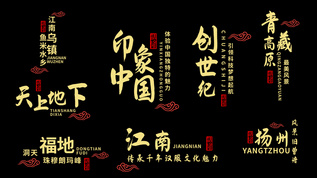 江南乌镇
鱼米水乡
JIANGNAN
WUZHEN
印象中国
体验中国独特的魅力
YINXIANGZHONGGUO
创世纪
CHUANGSHIJI
引领科技梦想起航
青藏高原
QINGZANGGAOYUAN
最美风景
天上地下
TIANSHANG
DIXIA
洞天福地
DONGTIAN
FUDI
珠穆朗玛峰
江南
JIANGNAN
传承千年汉服文化魅力
扬州
YANGZHOU
风景旧曾谙